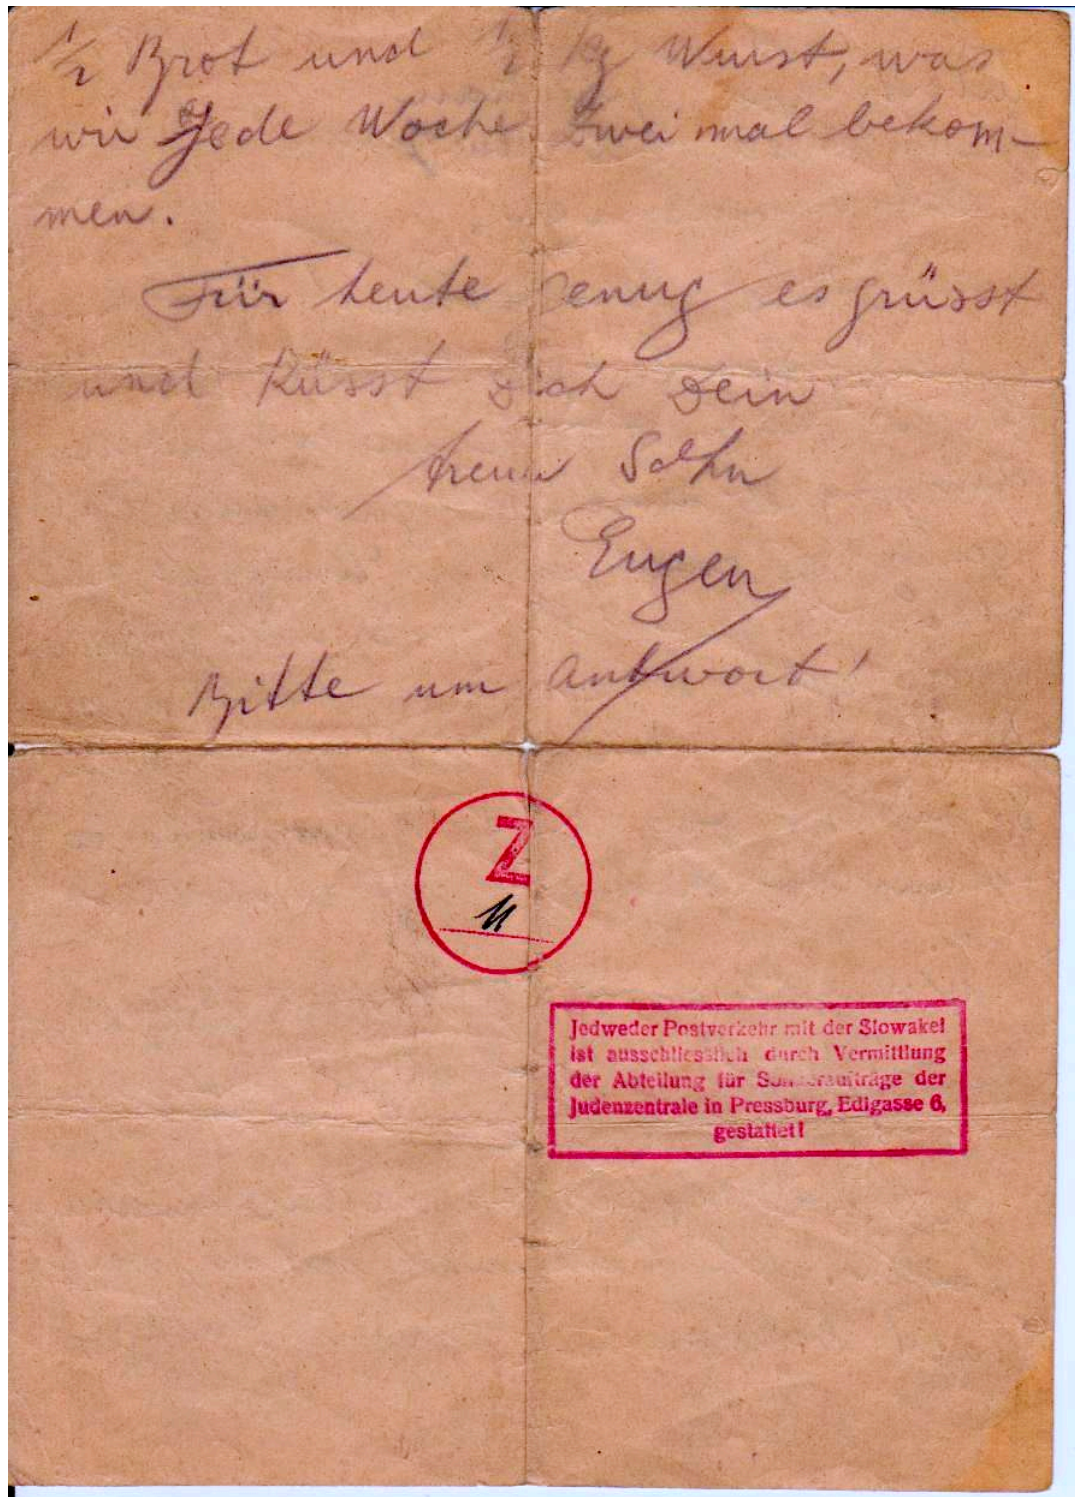 1/2 Brot und 1/2 kg Wurst, was
wir Jede Woche zwei mal bekom-
men.
Für heute genug es grüsst
und Küsst Dich Dein
treuer Sohn
Eugen
Bitte um Antwort!
Z
Jedweder Postverkehr mit der Slowakei
ist ausschliesslich durch Vermittlung
der Abteilung für Sonderaufträge der
Judenzentrale in Pressburg, Edlgasse 6,
gestattet!